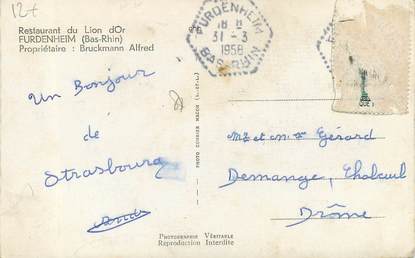 12+
Restaurant du Lion dOr
FURDENHEIM (Bas-Rhin)
Propriétaire : Bruckmann Alfred
FURDENHEIM
18 H
31 - 3
1958
BAS-RHIN
Un Bonjour
de
Strasbourg
PHOTO COMBIER MACON
Mr et Mme Gérard
Demange, Chabeuil
Drôme
PHOTOGRAPHIE VÉRITABLE
Reproduction Interdite